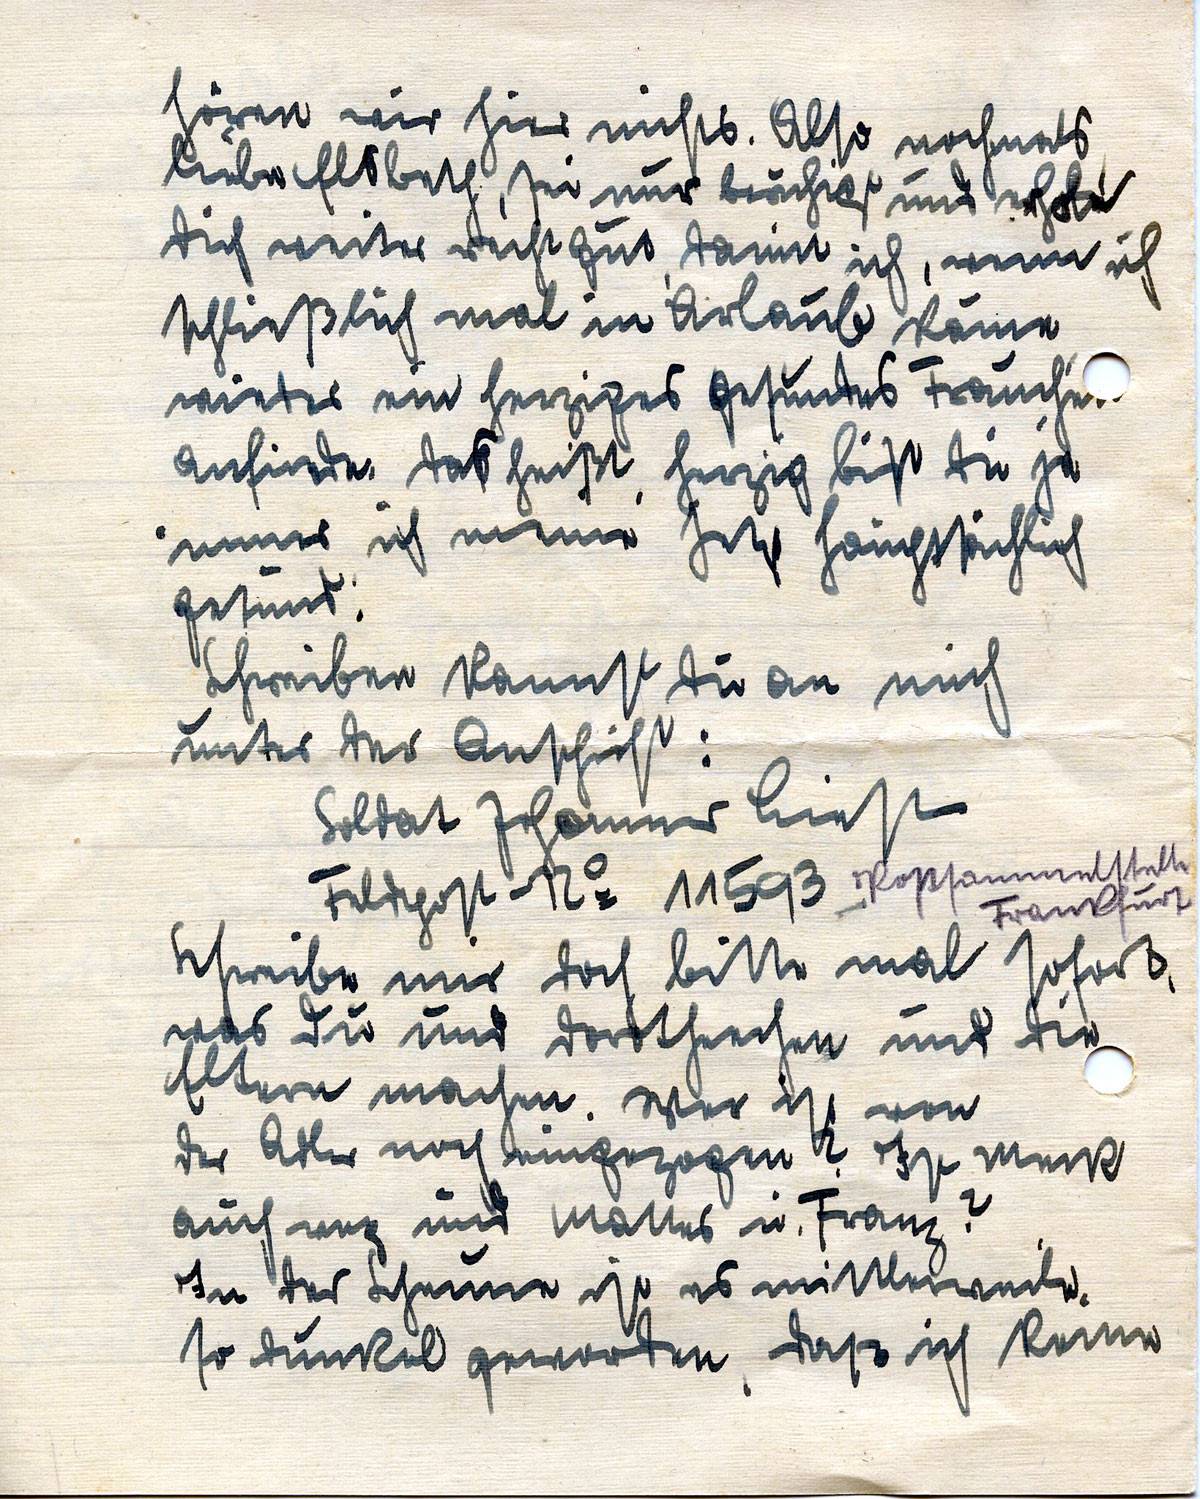 hören wir hier nichts. Also nochmals
liebe Elsbeth, sei nur und erhole
Dich weiter recht gut, damit ich, wenn ich
schließlich mal in Urlaub käme
wieder ein herziges gesundes Frauchen
anfinde. Das heißt, herzig bist Du ja
immer ich meine jetzt hauptsächlich
gesund.
Schreiben kannst Du an mich
unter der Anschrift:
Soldat Johannes
Feldpost-No 11593 Postsammelstelle
Frankfurt
Schreibe mir doch bitte mal sofort,
was Du und Dorotheechen und die
Eltern machen. Wer ist von
der Adler noch eingezogen? Ist Merk
auch weg und Mattes u. Franz?
In der Scheune ist es mittlerweile
so dunkel geworden, daß ich keine